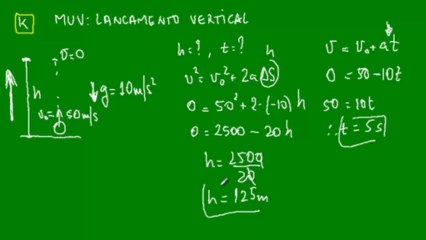 K MUV: LANÇAMENTO VERTICAL
v=0
h
g=10m/s²
v₀=50m/s
h=?, t=? h
v²=v₀²+2aΔS
0=50²+2·(-10)h
0=2500-20h
h=2500/20
h=125m
v=v₀+at
0=50-10t
50=10t
∴ t=5s